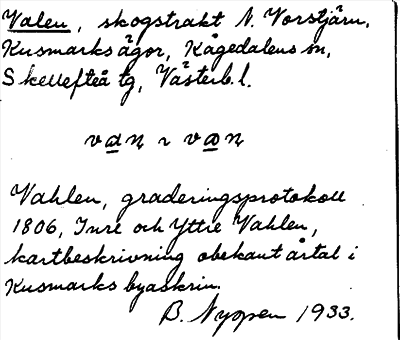 Valen, skogstrakt N. Vorstjärn,
Kusmarks ägor, Kågedalens sn,
Skellefteå tg, Västerb. l.
Vahlen, graderingsprotokoll
1806, Inre och Yttre Vahlen,
kartbeskrivning obekant årtal i
Kusmarks byaskrin.
B. Nyppen 1933.